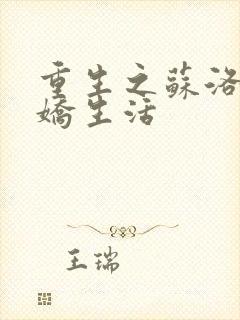 重生之蘇洛
嬌生活
王瑞